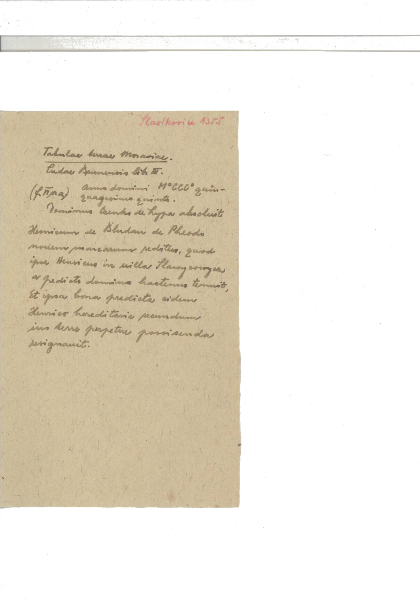 Slavíkovice 1355
Tabulae terrae Moraviae.
Cudae Brunensis lib. III.
Anno domini M°CCC° quin-
quagesimo quinto.
Dominus Czenko de Lypa absoluit
Henricum de Bludau de Pheodo
novem marcarum redditus, quod
ipse Henricus in villa
a predicto domino hactenus tenuit,
Et ipsa bona predicta eidem
Henrico hereditarie secundum
ius terre perpetue possidenda
resignauit.